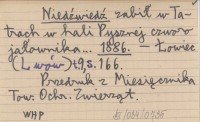 Niedźwiedź zabił w Ta-
trach w hali Pysznej czworo
jałownika... 1886. — Łowiec
(Lwów) t.9, s. 166.
Przedruk z Miesięcznika
Tow. Ochr. Zwierząt.
WHP